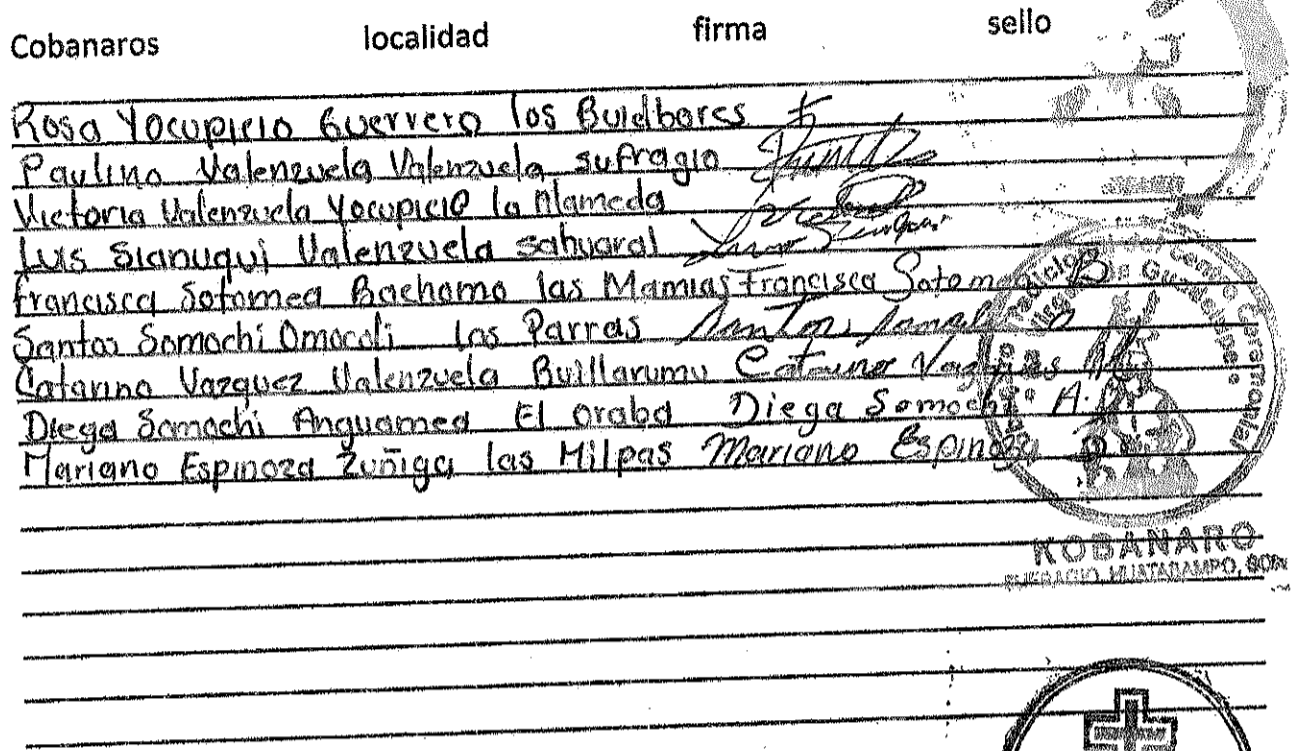 Cobanaros localidad firma sello
Rosa Yocupicio Guerrero los Buidbores
Paulino Valenzuela Valenzuela sufragio
Victoria Valenzuela Yocupicio la Alameda
Luis Sianuqui Valenzuela sahuaral
Francisca Sotomea Bachomo las Mamias Francisca Sotomea B
Santos Somochi Omocoli los Parras Santos
Catarino Vazquez Valenzuela Buillarumu Catarino Vazques
Diega Somochi Anguamea El oraba Diega Somochi A.
Mariano Espinoza Zuñiga las Milpas Mariano Espinoza
Centro Ceremonial
Guadalupe
KOBANARO
SUFRAGIO, HUATABAMPO, SON